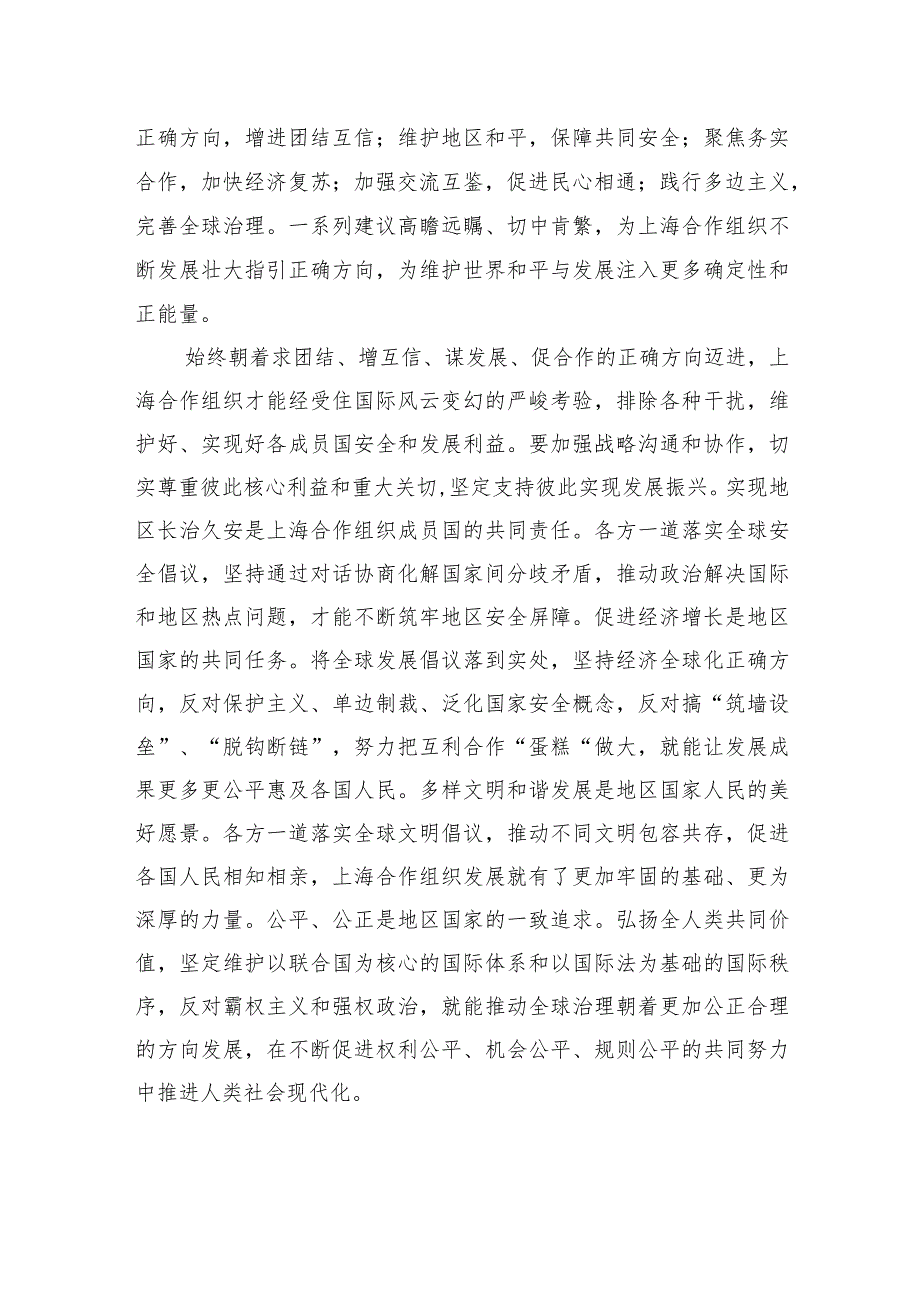 正确方向，增进团结互信；维护地区和平，保障共同安全；聚焦务实
合作，加快经济复苏；加强交流互鉴，促进民心相通；践行多边主义，
完善全球治理。一系列建议高瞻远瞩、切中肯綮，为上海合作组织不
断发展壮大指引正确方向，为维护世界和平与发展注入更多确定性和
正能量。
始终朝着求团结、增互信、谋发展、促合作的正确方向迈进，上
海合作组织才能经受住国际风云变幻的严峻考验，排除各种干扰，维
护好、实现好各成员国安全和发展利益。要加强战略沟通和协作，切
实尊重彼此核心利益和重大关切,坚定支持彼此实现发展振兴。实现地
区长治久安是上海合作组织成员国的共同责任。各方一道落实全球安
全倡议，坚持通过对话协商化解国家间分歧矛盾，推动政治解决国际
和地区热点问题，才能不断筑牢地区安全屏障。促进经济增长是地区
国家的共同任务。将全球发展倡议落到实处，坚持经济全球化正确方
向，反对保护主义、单边制裁、泛化国家安全概念，反对搞“筑墙设
垒”、“脱钩断链”，努力把互利合作“蛋糕“做大，就能让发展成
果更多更公平惠及各国人民。多样文明和谐发展是地区国家人民的美
好愿景。各方一道落实全球文明倡议，推动不同文明包容共存，促进
各国人民相知相亲，上海合作组织发展就有了更加牢固的基础、更为
深厚的力量。公平、公正是地区国家的一致追求。弘扬全人类共同价
值，坚定维护以联合国为核心的国际体系和以国际法为基础的国际秩
序，反对霸权主义和强权政治，就能推动全球治理朝着更加公正合理
的方向发展，在不断促进权利公平、机会公平、规则公平的共同努力
中推进人类社会现代化。